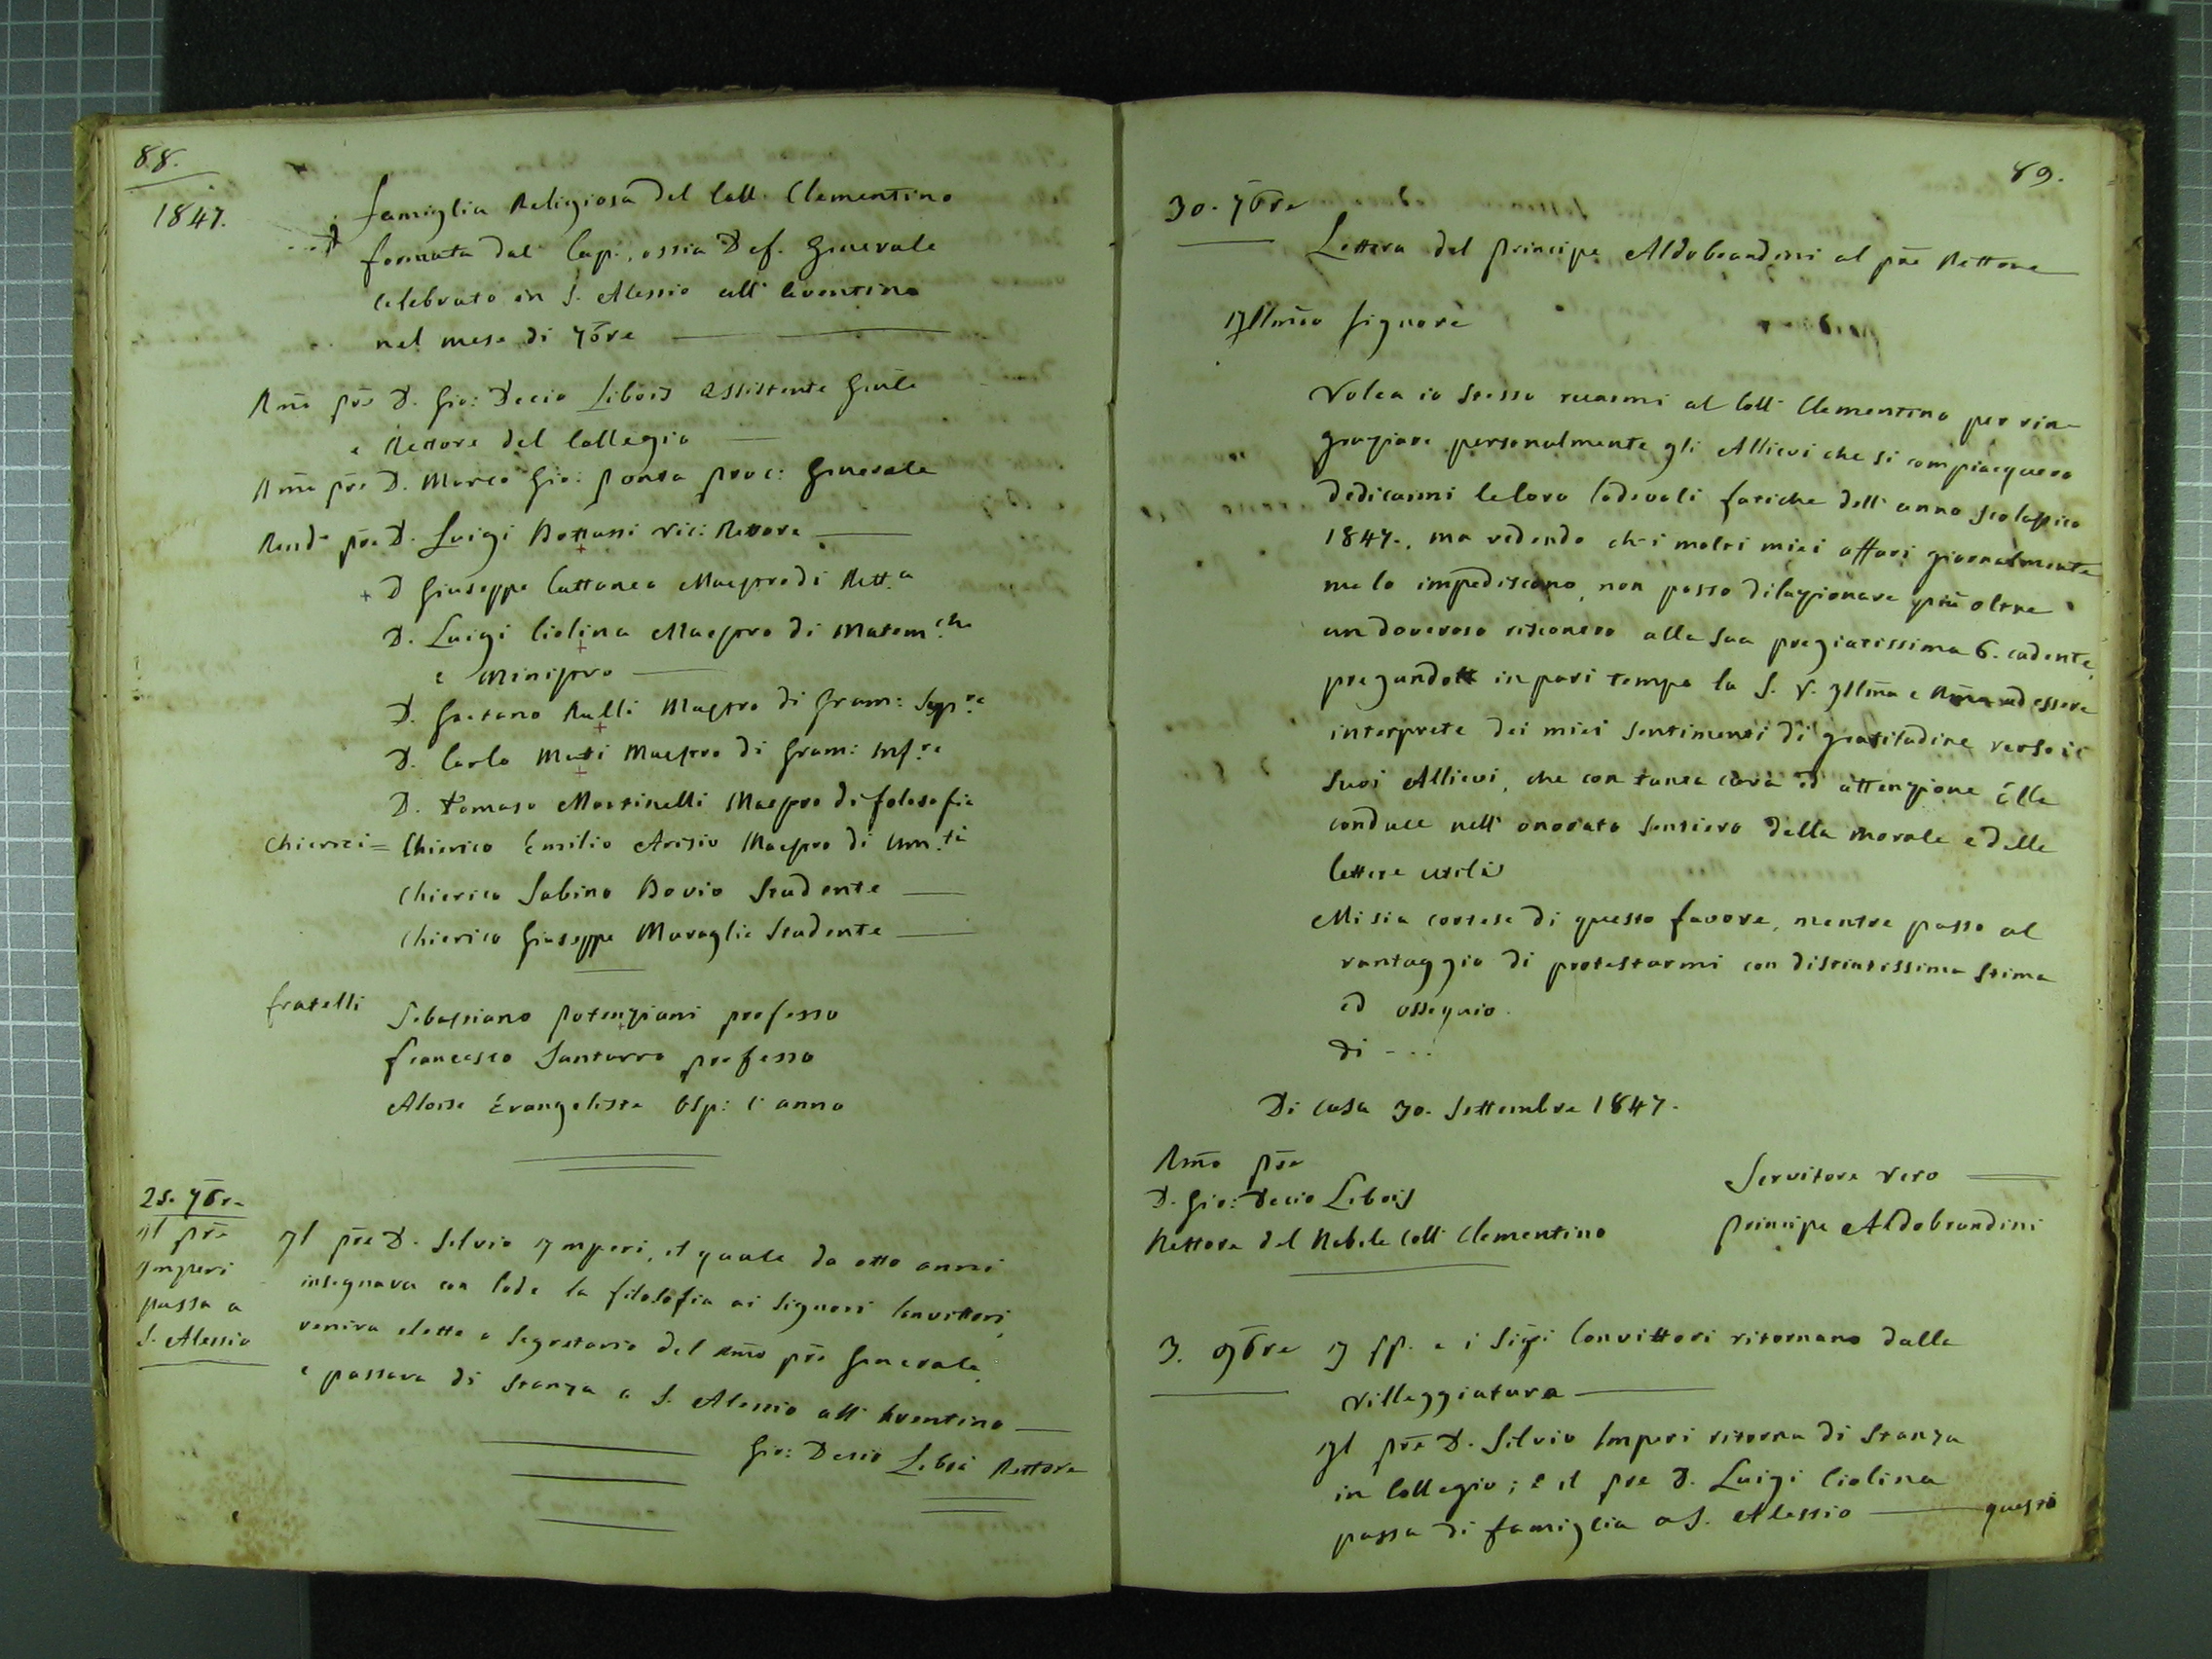 88.
1847.
Famiglia Religiosa del Coll. Clementino
formata dal Cap., ossia Def. Generale
celebrato in S. Alessio all' Aventino
nel mese di 7bre
Rmo pre D. Gio: Decio Libois Assistente Gnle
e Rettore del Collegio
Rmo pre D. Marco Gio: Ponta Proc: Generale
Rendo pre D. Luigi Bottassi Vic: Rettore
+ D Giuseppe Cattaneo Maestro di Rett.a
D. Luigi Ciolina Maestro di Matem.che
e Ministro
D. Gaetano Rulli Maestro di Gram: Sup.re
D. Carlo Mati Maestro di Gram: inf.re
D. Tomaso Martinelli Maestro di folosofia
Chierici = Chierico Emilio Arisio Maestro di Um.tà
Chierico Sabino Bovio Studente
Chierico Giuseppe Moraglia Studente
fratelli
Sebastiano Potenziani professo
Francesco Santurro professo
Aloise Evangelista Osp: l'anno
25. 7bre
Il pre
Imperi
passa a
S. Alessio
Il pre D. Silvio Imperi, il quale da otto anni
insegnava con lode la filosofia ai Signori Convittori,
veniva eletto a Segretario del Rmo pre Generale,
e passava di stanza a S. Alessio all' Aventino
Gio: Decio Libois Rettore
89.
30. 7bre
Lettera del Principe Aldobrandini al pre Rettore
Illmo Signore
Volea io stesso recarmi al Coll. Clementino per rin-
graziare personalmente gli Allievi che si compiacquero
dedicarmi le loro lodevoli fatiche dell' anno scolastico
1847., ma vedendo che i molti miei affari giornalmente
me lo impediscono, non posso dilazionare più oltre
un doveroso riscontro alla sua pregiatissima 6. cadente,
pregandola in pari tempo la S. V. Illma e Rma ad essere
interprete dei miei sentimenti di gratitudine verso i
suoi Allievi, che con tanta cura ed attenzione Ella
conduce nell' onorato sentiero della morale e delle
lettere utili
Mi sia cortese di questo favore, mentre passo al
vantaggio di protestarmi con distintissima stima
ed ossequio.
Di - . .
Di Casa 30. Settembre 1847.
Rmo pre
D. Gio: Decio Libois
Rettore del Nobile Coll. Clementino
Servitore vero
Principe Aldobrandini
3. 9bre I PP. e i Sigri Convittori ritornano dalla
villeggiatura
Il pre D. Silvio Imperi ritorna di stanza
in Collegio; e il pre D. Luigi Ciolina
passa di famiglia a S. Alessio
questi